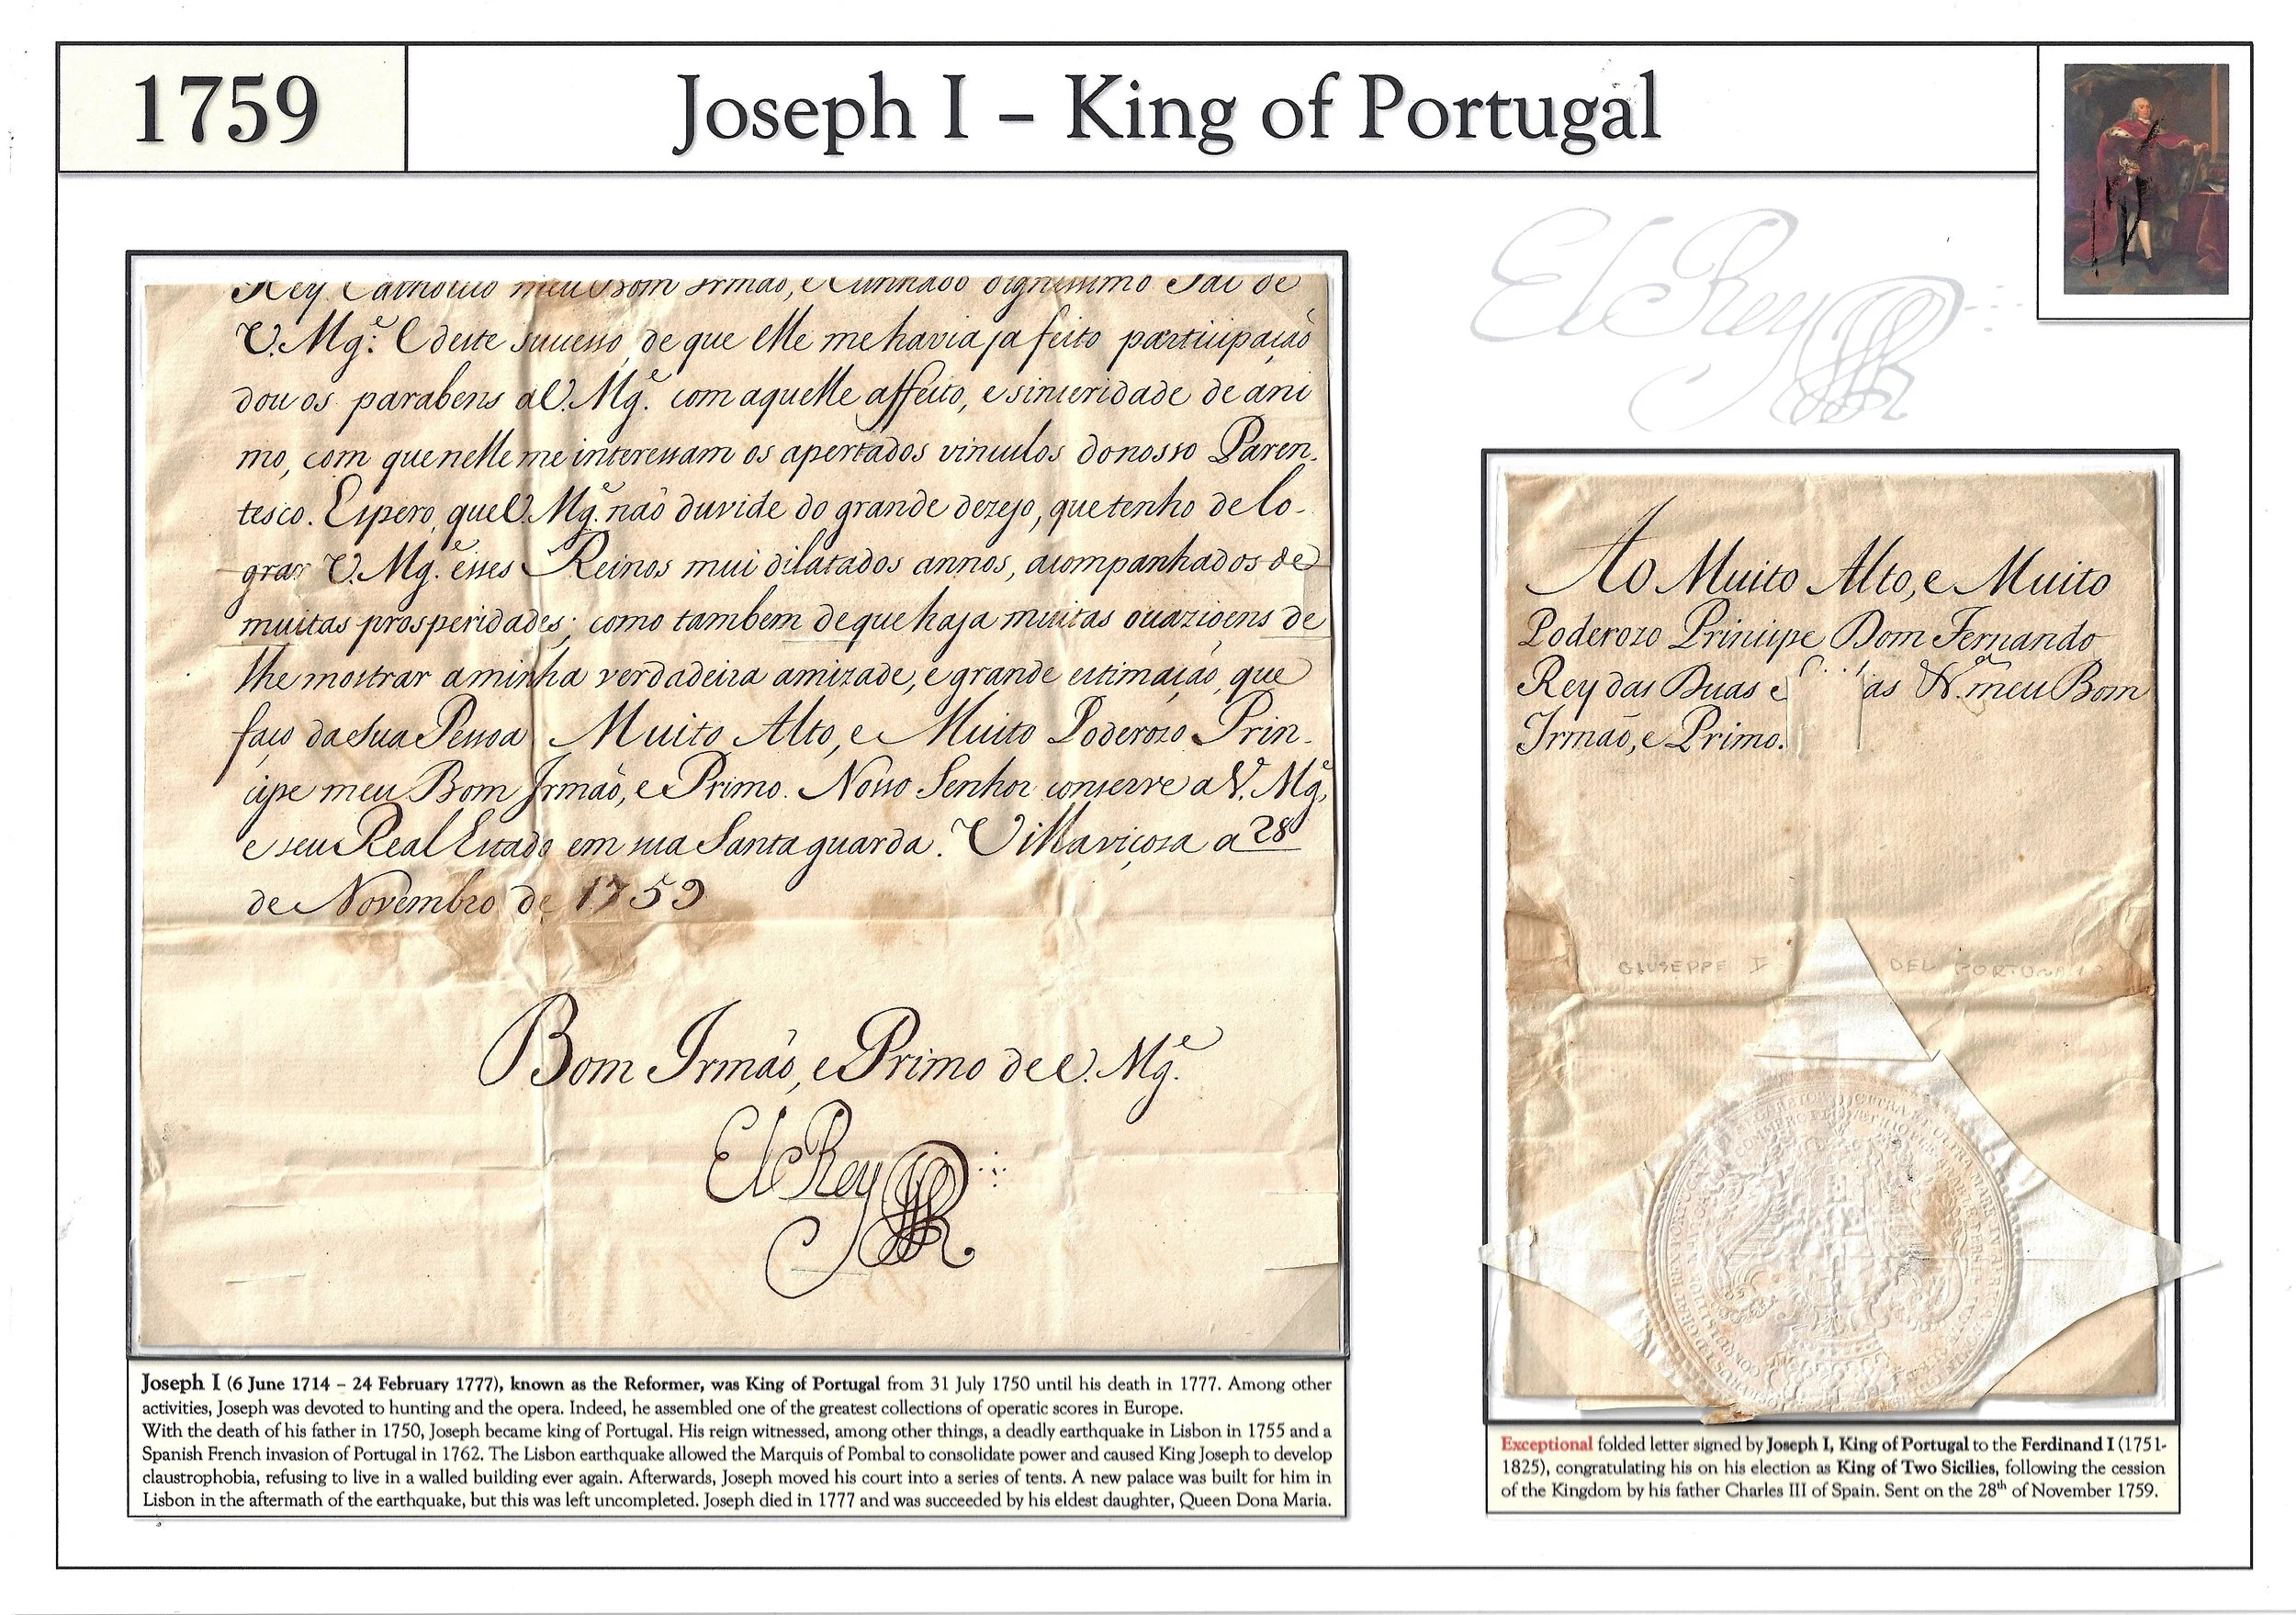 1759
Joseph I – King of Portugal
El Rey
Rey Catholico meu Bom Irmão, e Cunhado dignissimo Pai de
V. Mg.e E deste sucesso, de que elle me havia ja feito participação
dou os parabens a V. Mg.e com aquelle affeito, e sinseridade de ani
mo, com que nelle me interessam os apertados vinculos do nosso Paren-
tesco. Espero, que V. Mg.e não duvide do grande dezejo, que tenho de lo-
grar V. Mg.e esses Reinos mui dilatados annos, acompanhados de
muitas prosperidades; como tambem de que haja muitas ocazioens de
lhe mostrar a minha verdadeira amizade, e grande estimação, que
faço da sua Pessoa Muito Alto, e Muito Poderozo Prin-
cipe meu Bom Irmão, e Primo. Nosso Senhor conserve a V. Mg.e
e seu Real Estado em sua Santa guarda. Villaviçoza a 28
de Novembro de 1759
Bom Irmão, e Primo de V. Mg.e
El Rey
Ao Muito Alto, e Muito
Poderozo Principe Dom Fernando
Rey das Duas as N. meu Bom
Irmão, e Primo.
GIUSEPPE I DEL PORTOGALLO
Joseph I (6 June 1714 – 24 February 1777), known as the Reformer, was King of Portugal from 31 July 1750 until his death in 1777. Among other
activities, Joseph was devoted to hunting and the opera. Indeed, he assembled one of the greatest collections of operatic scores in Europe.
With the death of his father in 1750, Joseph became king of Portugal. His reign witnessed, among other things, a deadly earthquake in Lisbon in 1755 and a
Spanish French invasion of Portugal in 1762. The Lisbon earthquake allowed the Marquis of Pombal to consolidate power and caused King Joseph to develop
claustrophobia, refusing to live in a walled building ever again. Afterwards, Joseph moved his court into a series of tents. A new palace was built for him in
Lisbon in the aftermath of the earthquake, but this was left uncompleted. Joseph died in 1777 and was succeeded by his eldest daughter, Queen Dona Maria.
Exceptional folded letter signed by Joseph I, King of Portugal to the Ferdinand I (1751-
1825), congratulating his on his election as King of Two Sicilies, following the cession
of the Kingdom by his father Charles III of Spain. Sent on the 28th of November 1759.